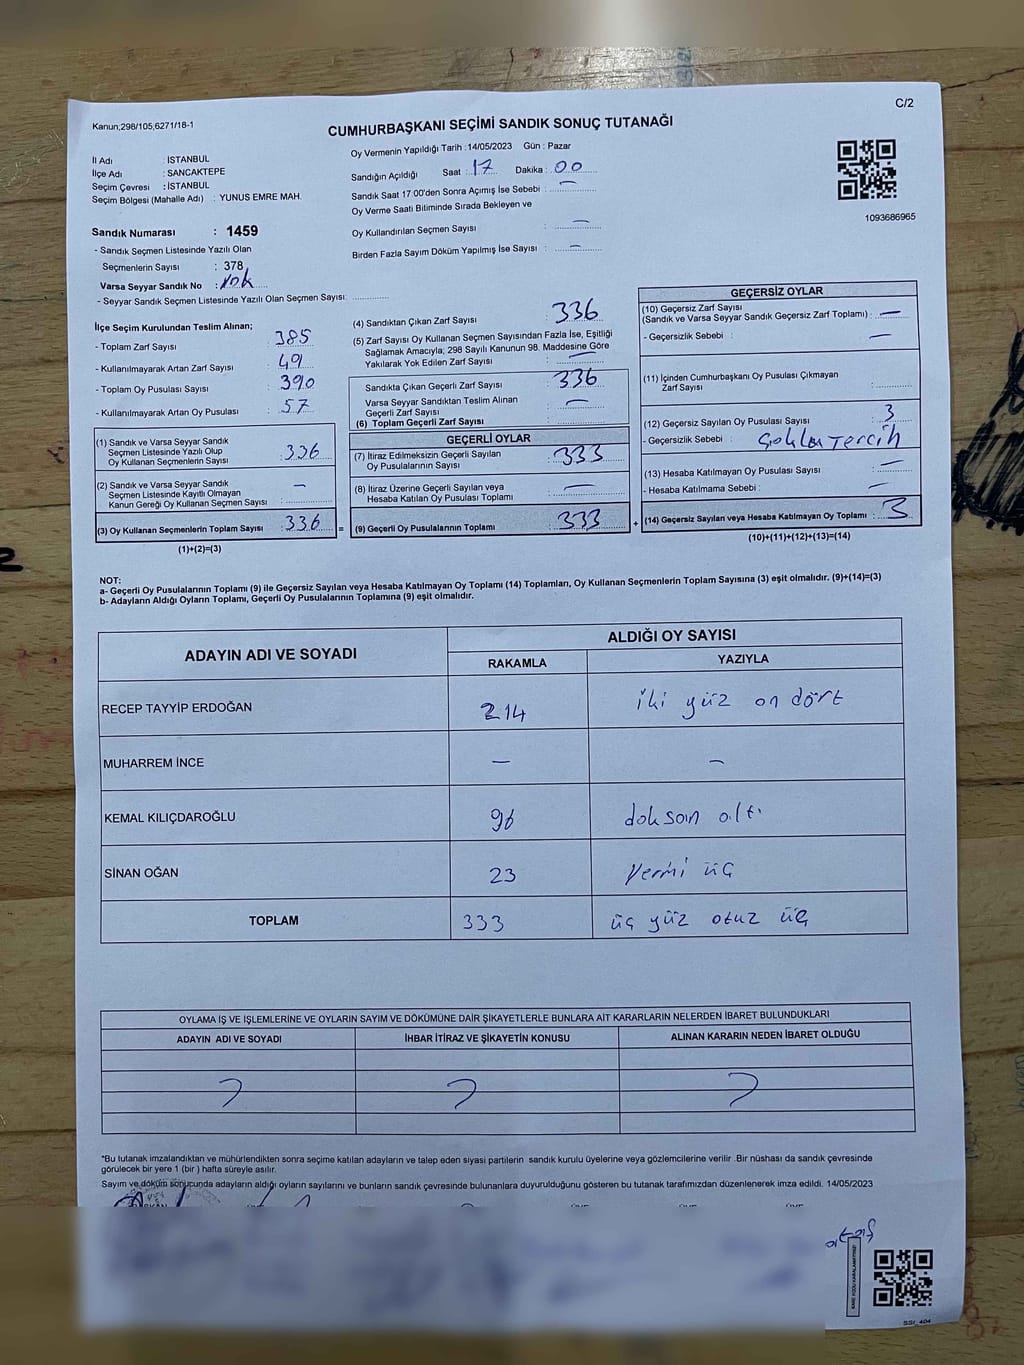 C/2
Kanun;298/105,6271/18-1
CUMHURBAŞKANI SEÇİMİ SANDIK SONUÇ TUTANAĞI
İl Adı : İSTANBUL
İlçe Adı : SANCAKTEPE
Seçim Çevresi : İSTANBUL
Seçim Bölgesi (Mahalle Adı) : YUNUS EMRE MAH.
Oy Vermenin Yapıldığı Tarih :14/05/2023 Gün : Pazar
Sandığın Açıldığı Saat : 17 Dakika : 00
Sandık Saat 17:00'den Sonra Açımış İse Sebebi : —
Oy Verme Saati Bitiminde Sırada Bekleyen ve
Oy Kullandırılan Seçmen Sayısı : —
Birden Fazla Sayım Döküm Yapılmış İse Sayısı : —
1093686965
Sandık Numarası : 1459
- Sandık Seçmen Listesinde Yazılı Olan
Seçmenlerin Sayısı : 378
Varsa Seyyar Sandık No : Yok
- Seyyar Sandık Seçmen Listesinde Yazılı Olan Seçmen Sayısı:
İlçe Seçim Kurulundan Teslim Alınan;
- Toplam Zarf Sayısı : 385
- Kullanılmayarak Artan Zarf Sayısı : 49
- Toplam Oy Pusulası Sayısı : 390
- Kullanılmayarak Artan Oy Pusulası : 57
(1) Sandık ve Varsa Seyyar Sandık
Seçmen Listesinde Yazılı Olup
Oy Kullanan Seçmenlerin Sayısı : 336
(2) Sandık ve Varsa Seyyar Sandık
Seçmen Listesinde Kayıtlı Olmayan
Kanun Gereği Oy Kullanan Seçmen Sayısı : —
(3) Oy Kullanan Seçmenlerin Toplam Sayısı : 336 =
(1)+(2)=(3)
(4) Sandıktan Çıkan Zarf Sayısı : 336
(5) Zarf Sayısı Oy Kullanan Seçmen Sayısından Fazla İse, Eşitliği
Sağlamak Amacıyla; 298 Sayılı Kanunun 98. Maddesine Göre
Yakılarak Yok Edilen Zarf Sayısı : —
Sandıkta Çıkan Geçerli Zarf Sayısı : 336
Varsa Seyyar Sandıktan Teslim Alınan
Geçerli Zarf Sayısı : —
(6) Toplam Geçerli Zarf Sayısı :
GEÇERLİ OYLAR
(7) İtiraz Edilmeksizin Geçerli Sayılan
Oy Pusulalarının Sayısı : 333
(8) İtiraz Üzerine Geçerli Sayılan veya
Hesaba Katılan Oy Pusulası Toplamı : —
(9) Geçerli Oy Pusulalarının Toplamı : 333 +
GEÇERSİZ OYLAR
(10) Geçersiz Zarf Sayısı
(Sandık ve Varsa Seyyar Sandık Geçersiz Zarf Toplamı) : —
- Geçersizlik Sebebi : —
(11) İçinden Cumhurbaşkanı Oy Pusulası Çıkmayan
Zarf Sayısı :
(12) Geçersiz Sayılan Oy Pusulası Sayısı : 3
- Geçersizlik Sebebi : Çoklu Tercih
(13) Hesaba Katılmayan Oy Pusulası Sayısı : —
- Hesaba Katılmama Sebebi : —
(14) Geçersiz Sayılan veya Hesaba Katılmayan Oy Toplamı : 3
(10)+(11)+(12)+(13)=(14)
NOT:
a- Geçerli Oy Pusulalarının Toplamı (9) ile Geçersiz Sayılan veya Hesaba Katılmayan Oy Toplamı (14) Toplamları, Oy Kullanan Seçmenlerin Toplam Sayısına (3) eşit olmalıdır. (9)+(14)=(3)
b- Adayların Aldığı Oyların Toplamı, Geçerli Oy Pusulalarının Toplamına (9) eşit olmalıdır.
ADAYIN ADI VE SOYADI ALDIĞI OY SAYISI
RAKAMLA YAZIYLA
RECEP TAYYİP ERDOĞAN 214 iki yüz on dört
MUHARREM İNCE — —
KEMAL KILIÇDAROĞLU 96 doksan altı
SİNAN OĞAN 23 Yermi üç
TOPLAM 333 üç yüz otuz üç
OYLAMA İŞ VE İŞLEMLERİNE VE OYLARIN SAYIM VE DÖKÜMÜNE DAİR ŞİKAYETLERLE BUNLARA AİT KARARLARIN NELERDEN İBARET BULUNDUKLARI
ADAYIN ADI VE SOYADI İHBAR İTİRAZ VE ŞİKAYETİN KONUSU ALINAN KARARIN NEDEN İBARET OLDUĞU
*Bu tutanak imzalandıktan ve mühürlendikten sonra seçime katılan adayların ve talep eden siyasi partilerin sandık kurulu üyelerine veya gözlemcilerine verilir .Bir nüshası da sandık çevresinde
görülecek bir yere 1 (bir ) hafta süreyle asılır.
Sayım ve döküm sonucunda adayların aldığı oyların sayılarını ve bunların sandık çevresinde bulunanlara duyurulduğunu gösteren bu tutanak tarafımızdan düzenlenerek imza edildi. 14/05/2023
KARE KODU KARALAMAYINIZ!
SSI_404